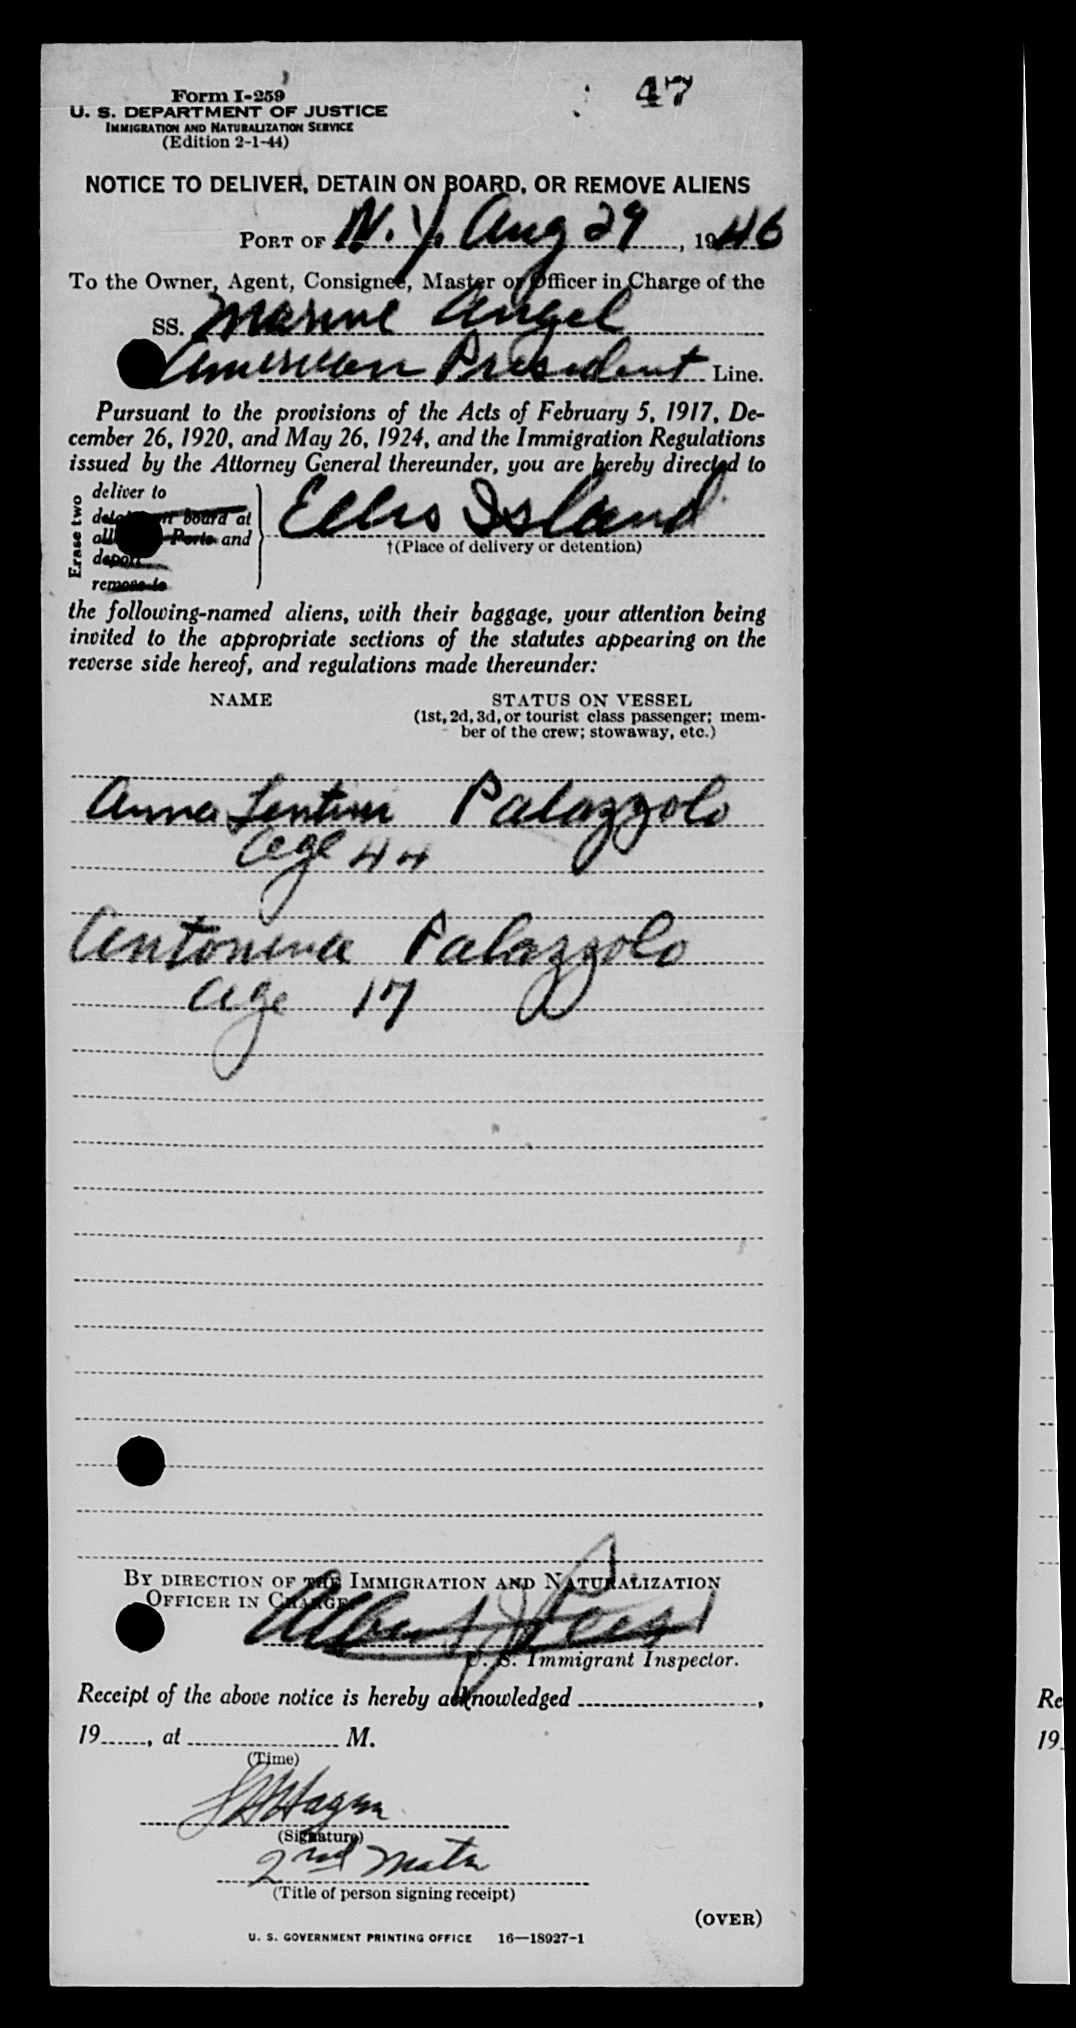 47
Form I-259
U. S. DEPARTMENT OF JUSTICE
IMMIGRATION AND NATURALIZATION SERVICE
(Edition 2-1-44)
NOTICE TO DELIVER, DETAIN ON BOARD, OR REMOVE ALIENS
PORT OF N.Y. Aug 29, 1946
To the Owner, Agent, Consignee, Master or Officer in Charge of the
SS. Marine Angel
American President Line.
Pursuant to the provisions of the Acts of February 5, 1917, De-
cember 26, 1920, and May 26, 1924, and the Immigration Regulations
issued by the Attorney General thereunder, you are hereby directed to
Erase two
deliver to
detain on board at
all Ports and
deport
remove to
Ellis Island
†(Place of delivery or detention)
the following-named aliens, with their baggage, your attention being
invited to the appropriate sections of the statutes appearing on the
reverse side hereof, and regulations made thereunder:
NAME STATUS ON VESSEL
(1st, 2d, 3d, or tourist class passenger; mem-
ber of the crew; stowaway, etc.)
Anna Lentini Palazzolo
age 44
Antonina Palazzolo
age 17
BY DIRECTION OF THE IMMIGRATION AND NATURALIZATION
OFFICER IN CHARGE
Albert J
U. S. Immigrant Inspector.
Receipt of the above notice is hereby acknowledged ,
19 , at M.
(Time)
Hagen
(Signature)
2nd Mate
(Title of person signing receipt)
(OVER)
U. S. GOVERNMENT PRINTING OFFICE 16—18927-1
Re
19